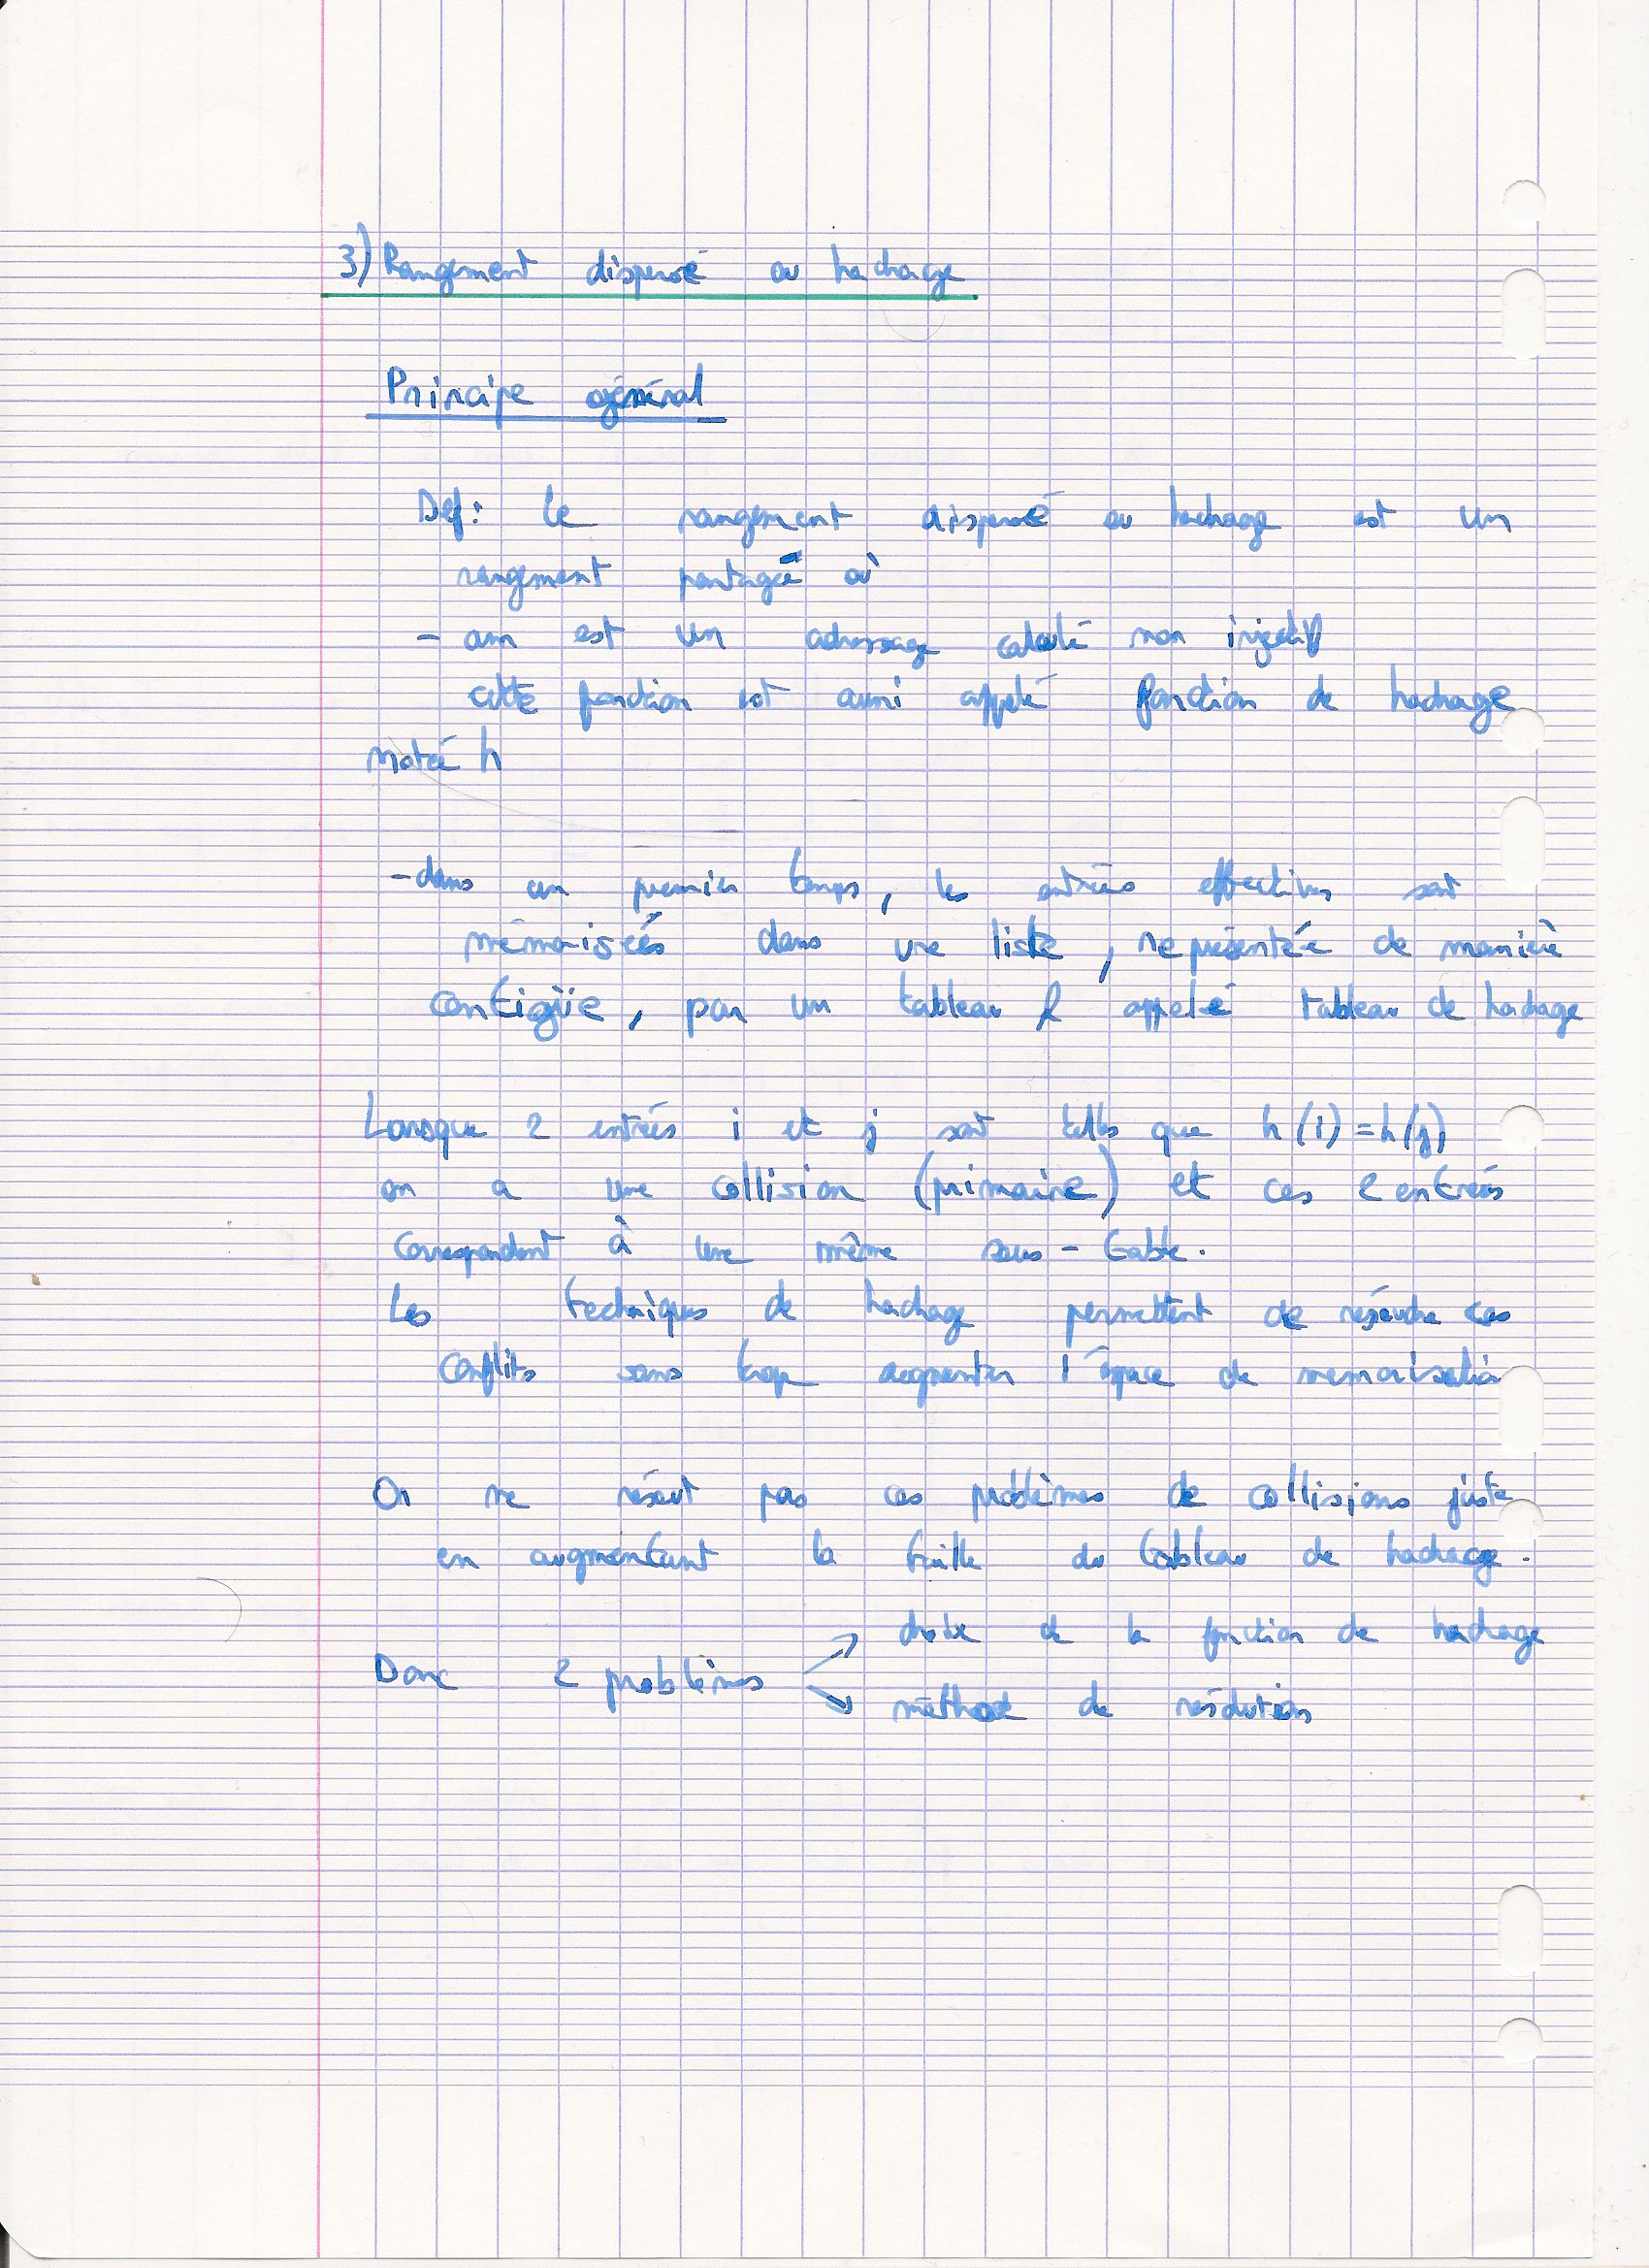 3) Rangement dispersé ou hachage
Principe général
Def: le rangement dispersé ou hachage est un
rangement partagé où
- am est un adressage calculé non injectif
cette fonction est aussi appelé fonction de hachage
notée h
- dans un premier temps, les entrées effectives sont
mémorisées dans une liste, représentée de manière
contigüe, par un tableau appelé tableau de hachage
Lorsque 2 entrées i et j sont telles que h(i)=h(j)
on a une collision (primaire) et ces 2 entrées
correspondent à une même sous-table.
Les techniques de hachage permettent de résoudre ces
conflits sans trop augmenter l'éspace de memorisation
On ne résout pas ces problèmes de collisions juste
en augmentant la taille du tableau de hachage.
choix de la fonction de hachage
Donc 2 problèmes
méthode de résolution